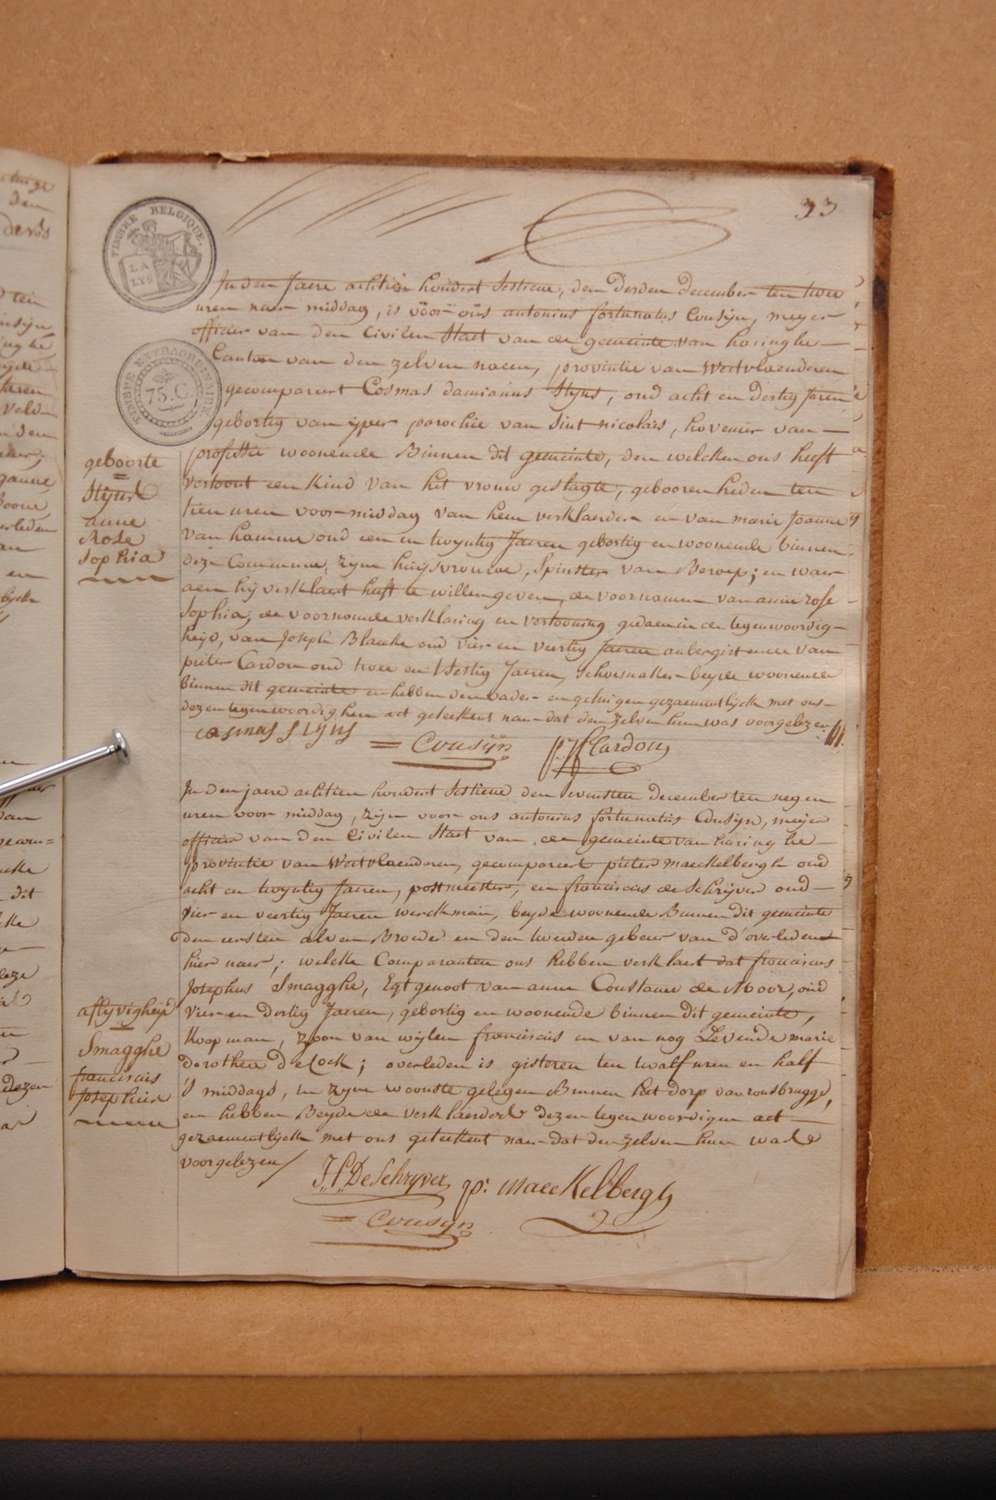 33
TIMBRE BELGIQUE.
LA
LYS
TIMBRE EXTRAORDINAIRE
75. C.
In den Jaere achtien hondert sestiene, den derden december ten twee
uren naer middag, is vöor öns antonius fortunatus Cousijn, meyer
officier van den Civilen Staet van de gemeinte van haringhe
Canton van den zelven naem, provintie van Westvlaenderen
gecompareert Cosmas damianus Stÿns, oud acht en dertig Jaren
gebortig van ÿper parochie van Sint nicolais, hovenier van
professie woonende Binnen dit gemeinte, den welcken ons heeft
vertoont een kind van het vrouw geslagte, gebooren heden ten
tien uren voor middag van hem verklaerder en van marie Joanne
van hamme oud een en twyntig Jaeren gebortig en woonende binnen
deze Commune, zyne huijsvrouwe, Spinster van Beroep; en waer
aen hij verklaert heeft te willen geven, de voornamen van anne rose
Sophia; de voornoemde verklaring en vertooning gedaen in de tegenwoordig-
heijd, van Joseph Blancke oud vier en veertig Jaeren aubergist en van
pieter Cardon oud twee en t'sestig Jaeren, Schoemaker beyde woonende
binnen dit gemeinte en hebben den vader en getuigen gezaementlijck met ons
dezen tegenwoordighen act geteekent naer dat den zelven hun was voorgelezen
cosmas stÿns
= Cousÿn
p: J: Cardon
geboorte
=
Stÿns
anne
Rose
Sophia
In den jaere achtien hondert sestiene den december ten negen
uren voor middag, zijn voor ons antonius fortunatus Cousijn, meijer
officier van den Civilen Staet van de gemeinte van haringhe
provintie van Westvlaenderen, gecompareert pieter maeckelbergh oud
acht en twyntig Jaeren, postmeester, en franciscus de Schrijver oud
vier en veertig Jaeren werckman, beyde woonende Binnen dit gemeinte
den eersten als en Broeder en den tweeden gebeur van d'overledene
hier naer; welcke Comparanten ons hebben verklaert dat franciscus
Josephus Smagghe, Egtgenoot van anne Constance de Moor, oud
vier en dertig Jaeren, gebortig en woonende binnen dit gemeinte,
koopman, zoon van wijlen franciscus en van nog Levende marie
dorothea de Cock; overleden is gisteren ten twalf uren en half
's middags, in zyne woonste gelegen Binnen het dorp van rousbrugge,
en hebben Beyde de verklaerders dezen tegenwoordigen act
gezaementlijck met ons geteekent naer dat den zelven hun was
voorgelezen
F: S: De Schryver
p: maeckelbergh
= Cousÿn
aflyvigheyd
Smagghe
franciscus
Josephus